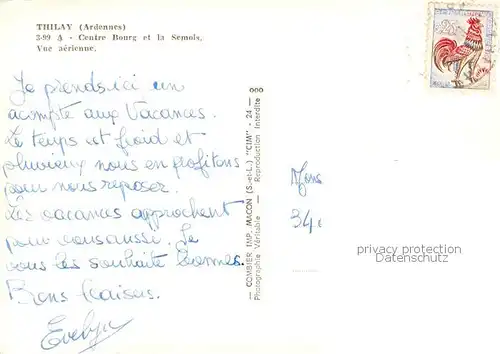 THILAY (Ardennes)
3-99 A - Centre Bourg et la Semois.
Vue aérienne.
Je prends ici un
acompte aux Vacances.
Le temps est froid et
pluvieux nous en profitons
pour nous reposer.
Les vacances approchent
pour vous aussi. Je
vous les souhaite bonnes.
Bons baisers.
Evelyne
COMBIER IMP. MACON (S.-et-L.) "CIM" - 24 -
Photographie Véritable - Reproduction Interdite
34
privacy protection
Datenschutz